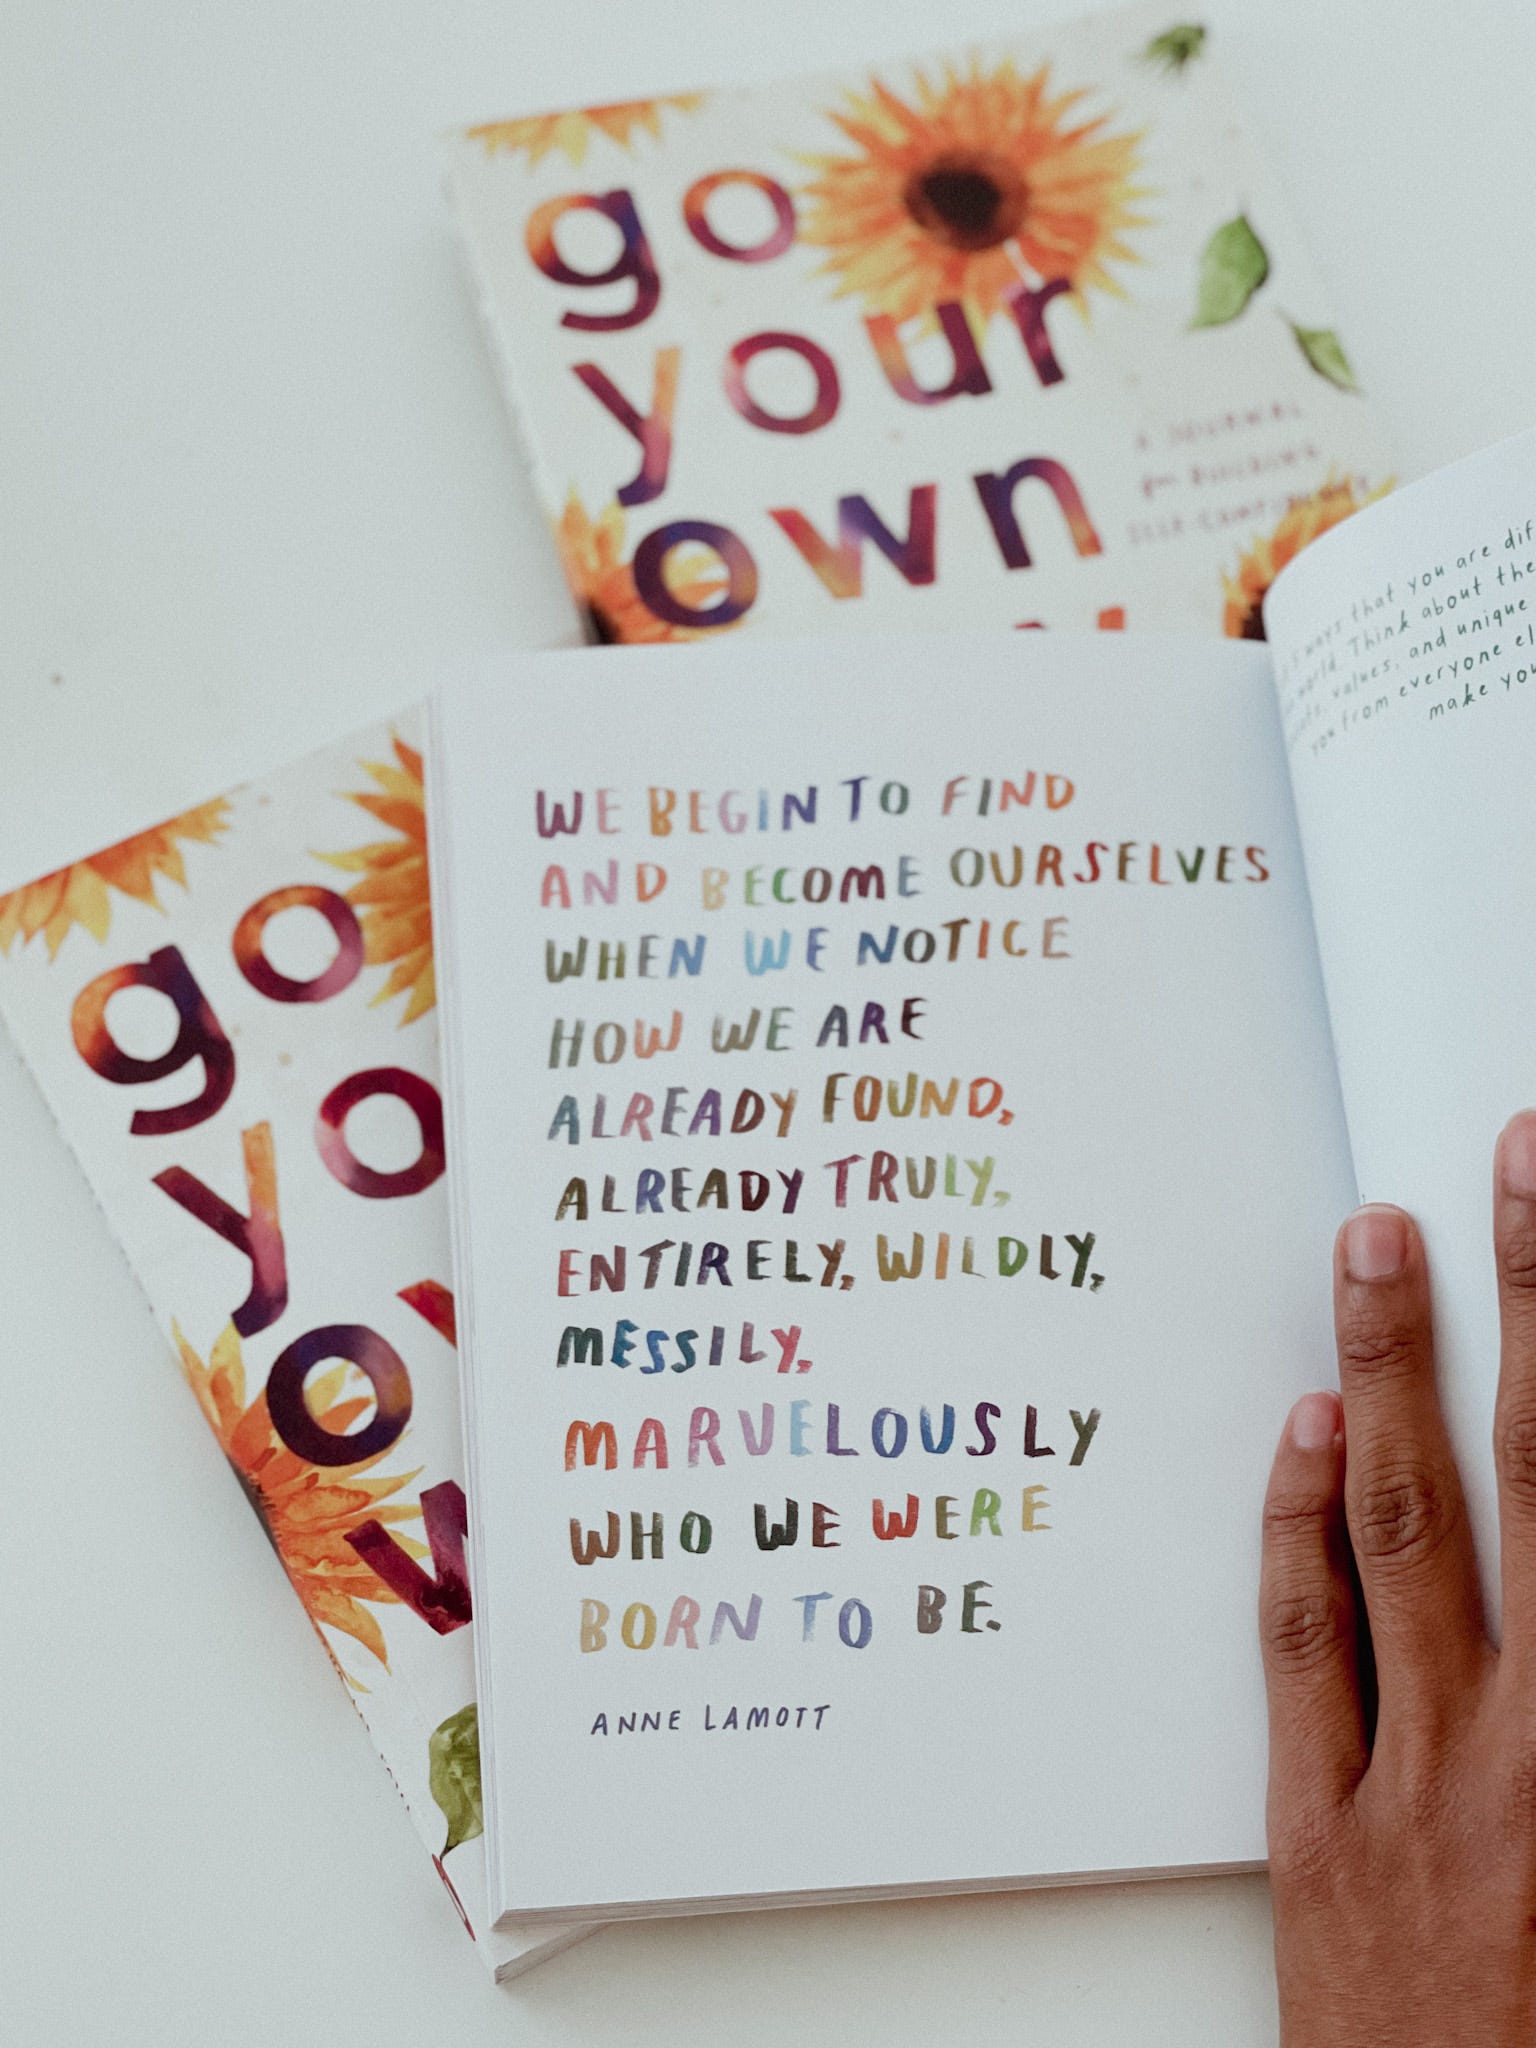 go
your
own
A JOURNAL
for BUILDING
SELF-CONFIDENCE
ways that you are
world. Think about the
values, and unique
you from everyone
make you
go
WE BEGIN TO FIND
AND BECOME OURSELVES
WHEN WE NOTICE
HOW WE ARE
ALREADY FOUND,
ALREADY TRULY,
ENTIRELY, WILDLY,
MESSILY,
MARVELOUSLY
WHO WE WERE
BORN TO BE.
ANNE LAMOTT